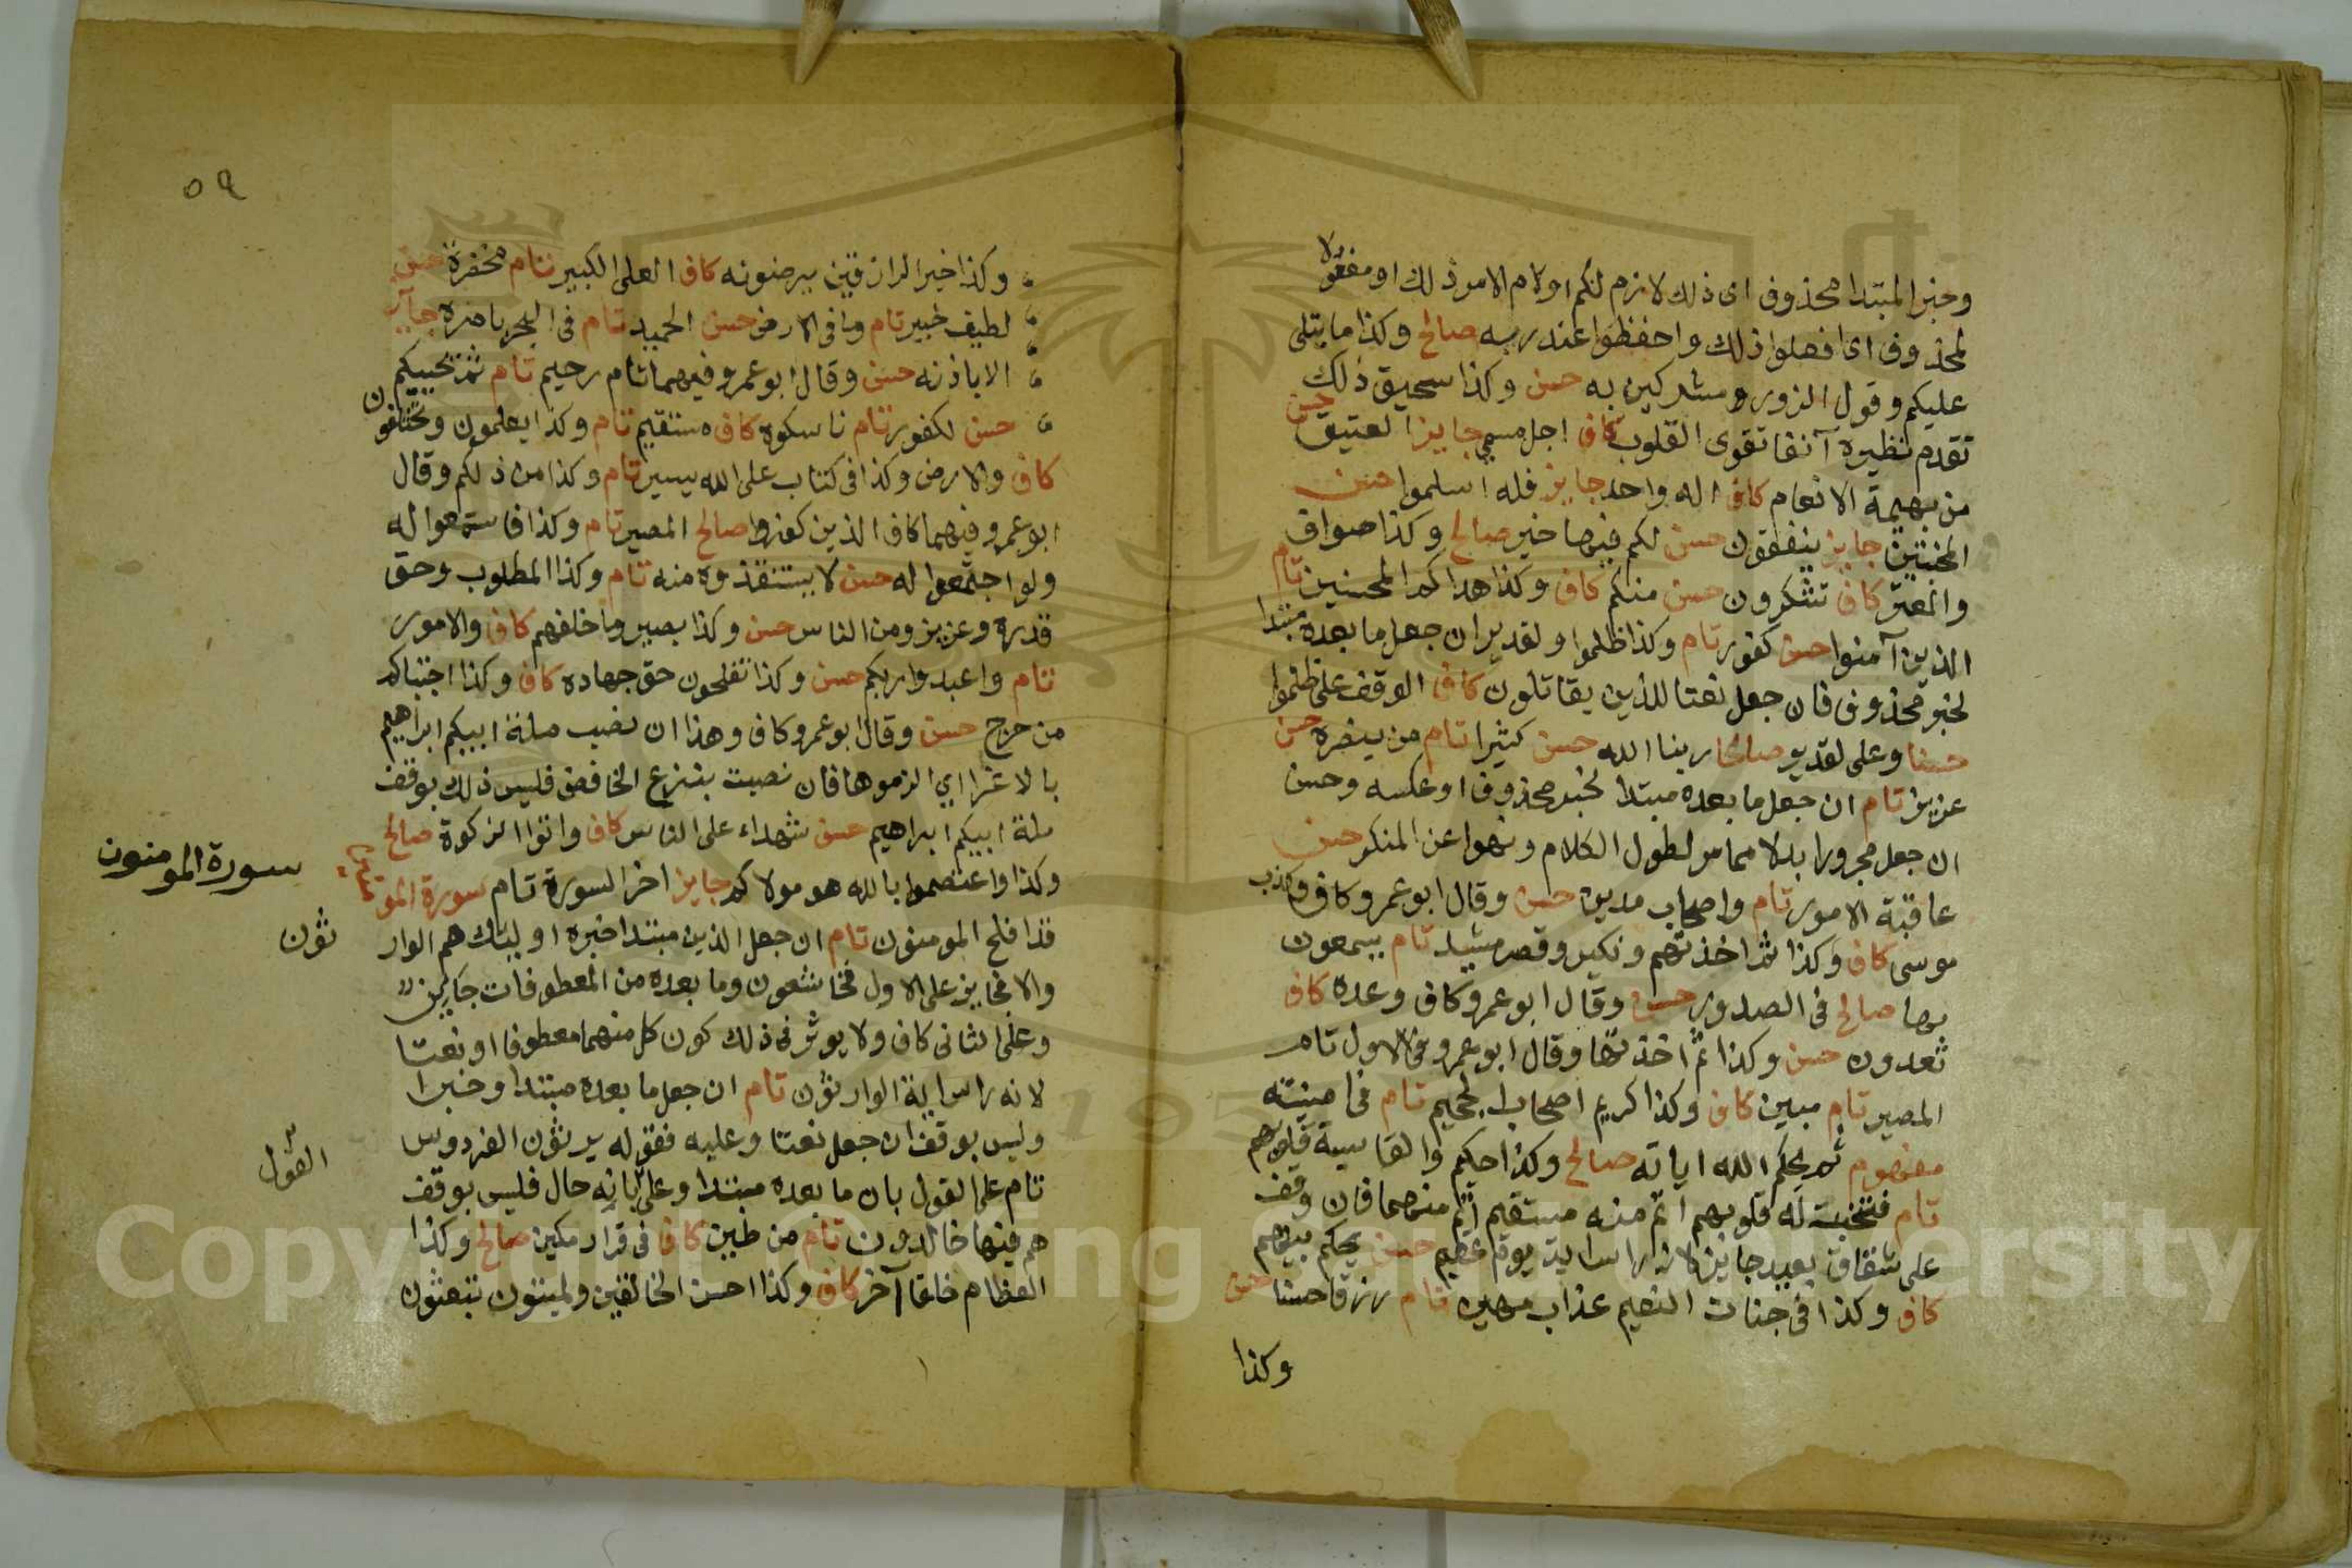 وخبر المبتدا محذوف اى ذلك لازم لكم او لام الامر ذلك او مفعولا
لمحذوف اى افعلوا ذلك واحفظوا عند ربه صالح وكذا ما يتلى
عليكم وقول الزور ومشركين به حسن وكذا سحيق ذلك حسن
تقدم نظيره آنفا تقوى القلوب كاف اجل مسمى جايز العتيق
من بهيمة الانعام كاف اله واحد جايز فله اسلموا حسن
المخبتين جايز ينفقون حسن لكم فيها خير صالح وكذا صواف
والمعتر كاف تشكرون حسن منكم كاف وكذا هداكم المحسنين تام
الذين آمنوا حسن كفور تام وكذا ظلموا ولقدير ان جعل ما بعده مبتدا
لخبر محذوف فان جعل نعتا للذين يقاتلون كاف الوقف على ظلموا
حسنا وعلى لقدير صالحا ربنا الله حسن كثيرا تام من ينصره حسن
عزيز تام ان جعل ما بعده مبتدا لخبر محذوف او عكسه وحسن
ان جعل مجرورا بدلا مما مر لطول الكلام ونهوا عن المنكر حسن
عاقبة الامور تام واصحاب مدين حسن وقال ابو عمرو كاف وكذب
موسى كاف وكذا ثم اخذتهم ونكير وقصر مشيد تام يسمعون
بها صالح فى الصدور حسن وقال ابو عمرو كاف وعده كاف
تعدون حسن وكذا ثم اخذتها وقال ابو عمرو فى الاول تام
المصير تام مبين كاف وكذا كريم اصحاب الجحيم تام فى امنيته
مفهوم ثم يحكم الله اياته صالح وكذا حكيم والقاسية قلوبهم
تام فتخبت له قلوبهم اتم منه مستقيم اتم منهما فان وقف
على شقاق بعيد جايز لانه راس اية يوم عظيم حسن يحكم بينهم
كاف وكذا فى جنات النعيم عذاب مهين تام رزقا حسنا حسن
وكذا
٥٩
وكذا خير الرازقين يرضونه كاف العلى الكبير تام مخضرة حسن
لطيف خبير تام وما فى الارض حسن الحميد تام فى البحر بامره جايز
الا باذنه حسن وقال ابو عمرو فيهما تام رحيم تام ثم يحييكم
حسن لكفور تام ناسكوه كاف مستقيم تام وكذا يعلمون وتختلفون
كاف والارض وكذا فى كتاب على الله يسير تام وكذا من ذلكم وقال
ابو عمرو فيهما كاف الذين كفروا صالح المصير تام وكذا فاستمعوا له
ولو اجتمعوا له حسن لا يستنقذوه منه تام وكذا المطلوب وحق
قدره وعزيز ومن الناس حسن وكذا بصير وما خلفهم كاف والامور
تام واعبدوا ربكم حسن وكذا تفلحون حق جهاده كاف وكذا اجتباكم
من حرج حسن وقال ابو عمرو كاف وهذا ان نصب ملة ابيكم ابراهيم
بالاغرا اي الزموها فان نصبت بنزع الخافض فليس ذلك بوقف
ملة ابيكم ابراهيم حسن شهداء على الناس كاف واتوا الزكوة صالح
وكذا واعتصموا بالله هو مولاكم جايز اخر السورة تام سورة المومنون
سورة المومنون
قد افلح المومنون تام ان جعل الذين مبتدا خبره اوليك هم الوار
ثون
والا فجايز على الاول فخاشعون وما بعده من المعطوفات جايز
وعلى الثانى كاف ولا يوثر فى ذلك كون كل منهما معطوفا او نعتا
لانه راس اية الوارثون تام ان جعل ما بعده مبتدا وخبرا
وليس بوقف ان جعل نعتا وعليه فقوله يرثون الفردوس
تام على القول بان ما بعده مبتدا وعلى بانه حال فليس بوقف
القول
هم فيها خالدون تام من طين كاف فى قرار مكين صالح وكذا
العظام خلقا آخر كاف وكذا احسن الخالقين ولميتون تبعثون
Copyright © King Saud University
195